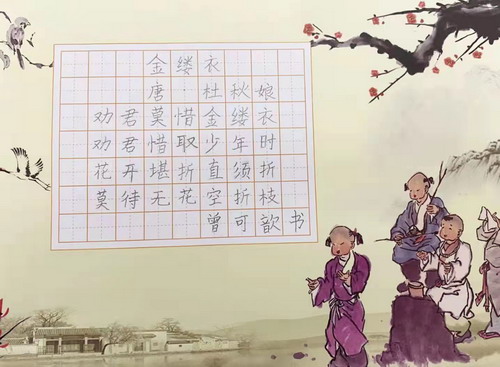 金缕衣
唐·杜秋娘
劝君莫惜金缕衣
劝君惜取少年时
花开堪折直须折
莫待无花空折枝
曾可歆书